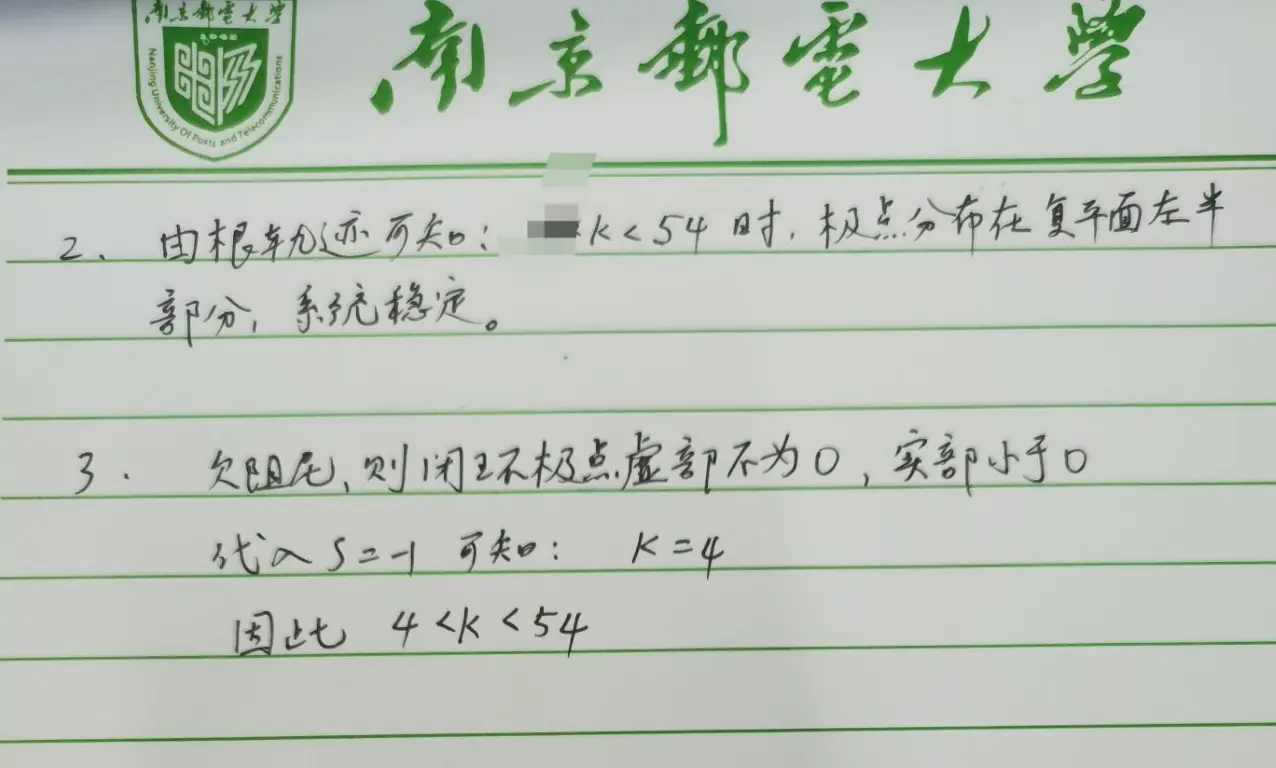 南京邮电大学
Nanjing University Of Posts and Telecommunications
南京郵電大學
2. 由根轨迹可知: K<54时, 极点分布在复平面左半
部分, 系统稳定。
3. 欠阻尼, 则闭环极点虚部不为0, 实部小于0
代入S=-1 可知: K=4
因此 4<K<54